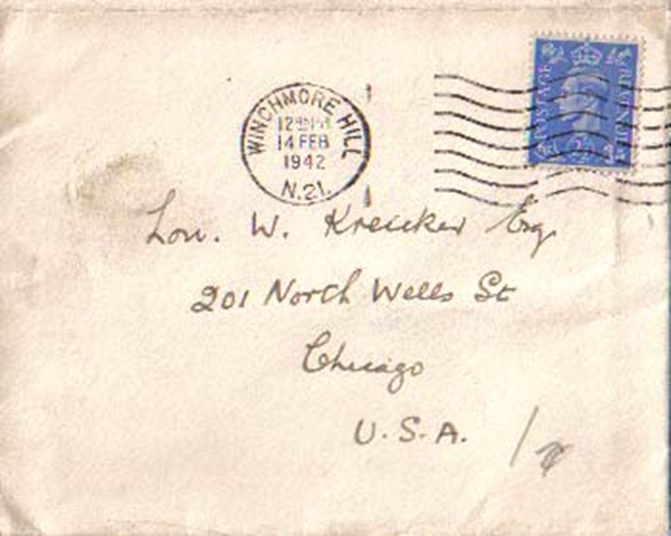 WINCHMORE HILL
12 PM
14 FEB
1942
N.21.
POSTAGE REVENUE
2½ D
Lou. W. Kreicker Esq.
201 North Wells St
Chicago
U.S.A.